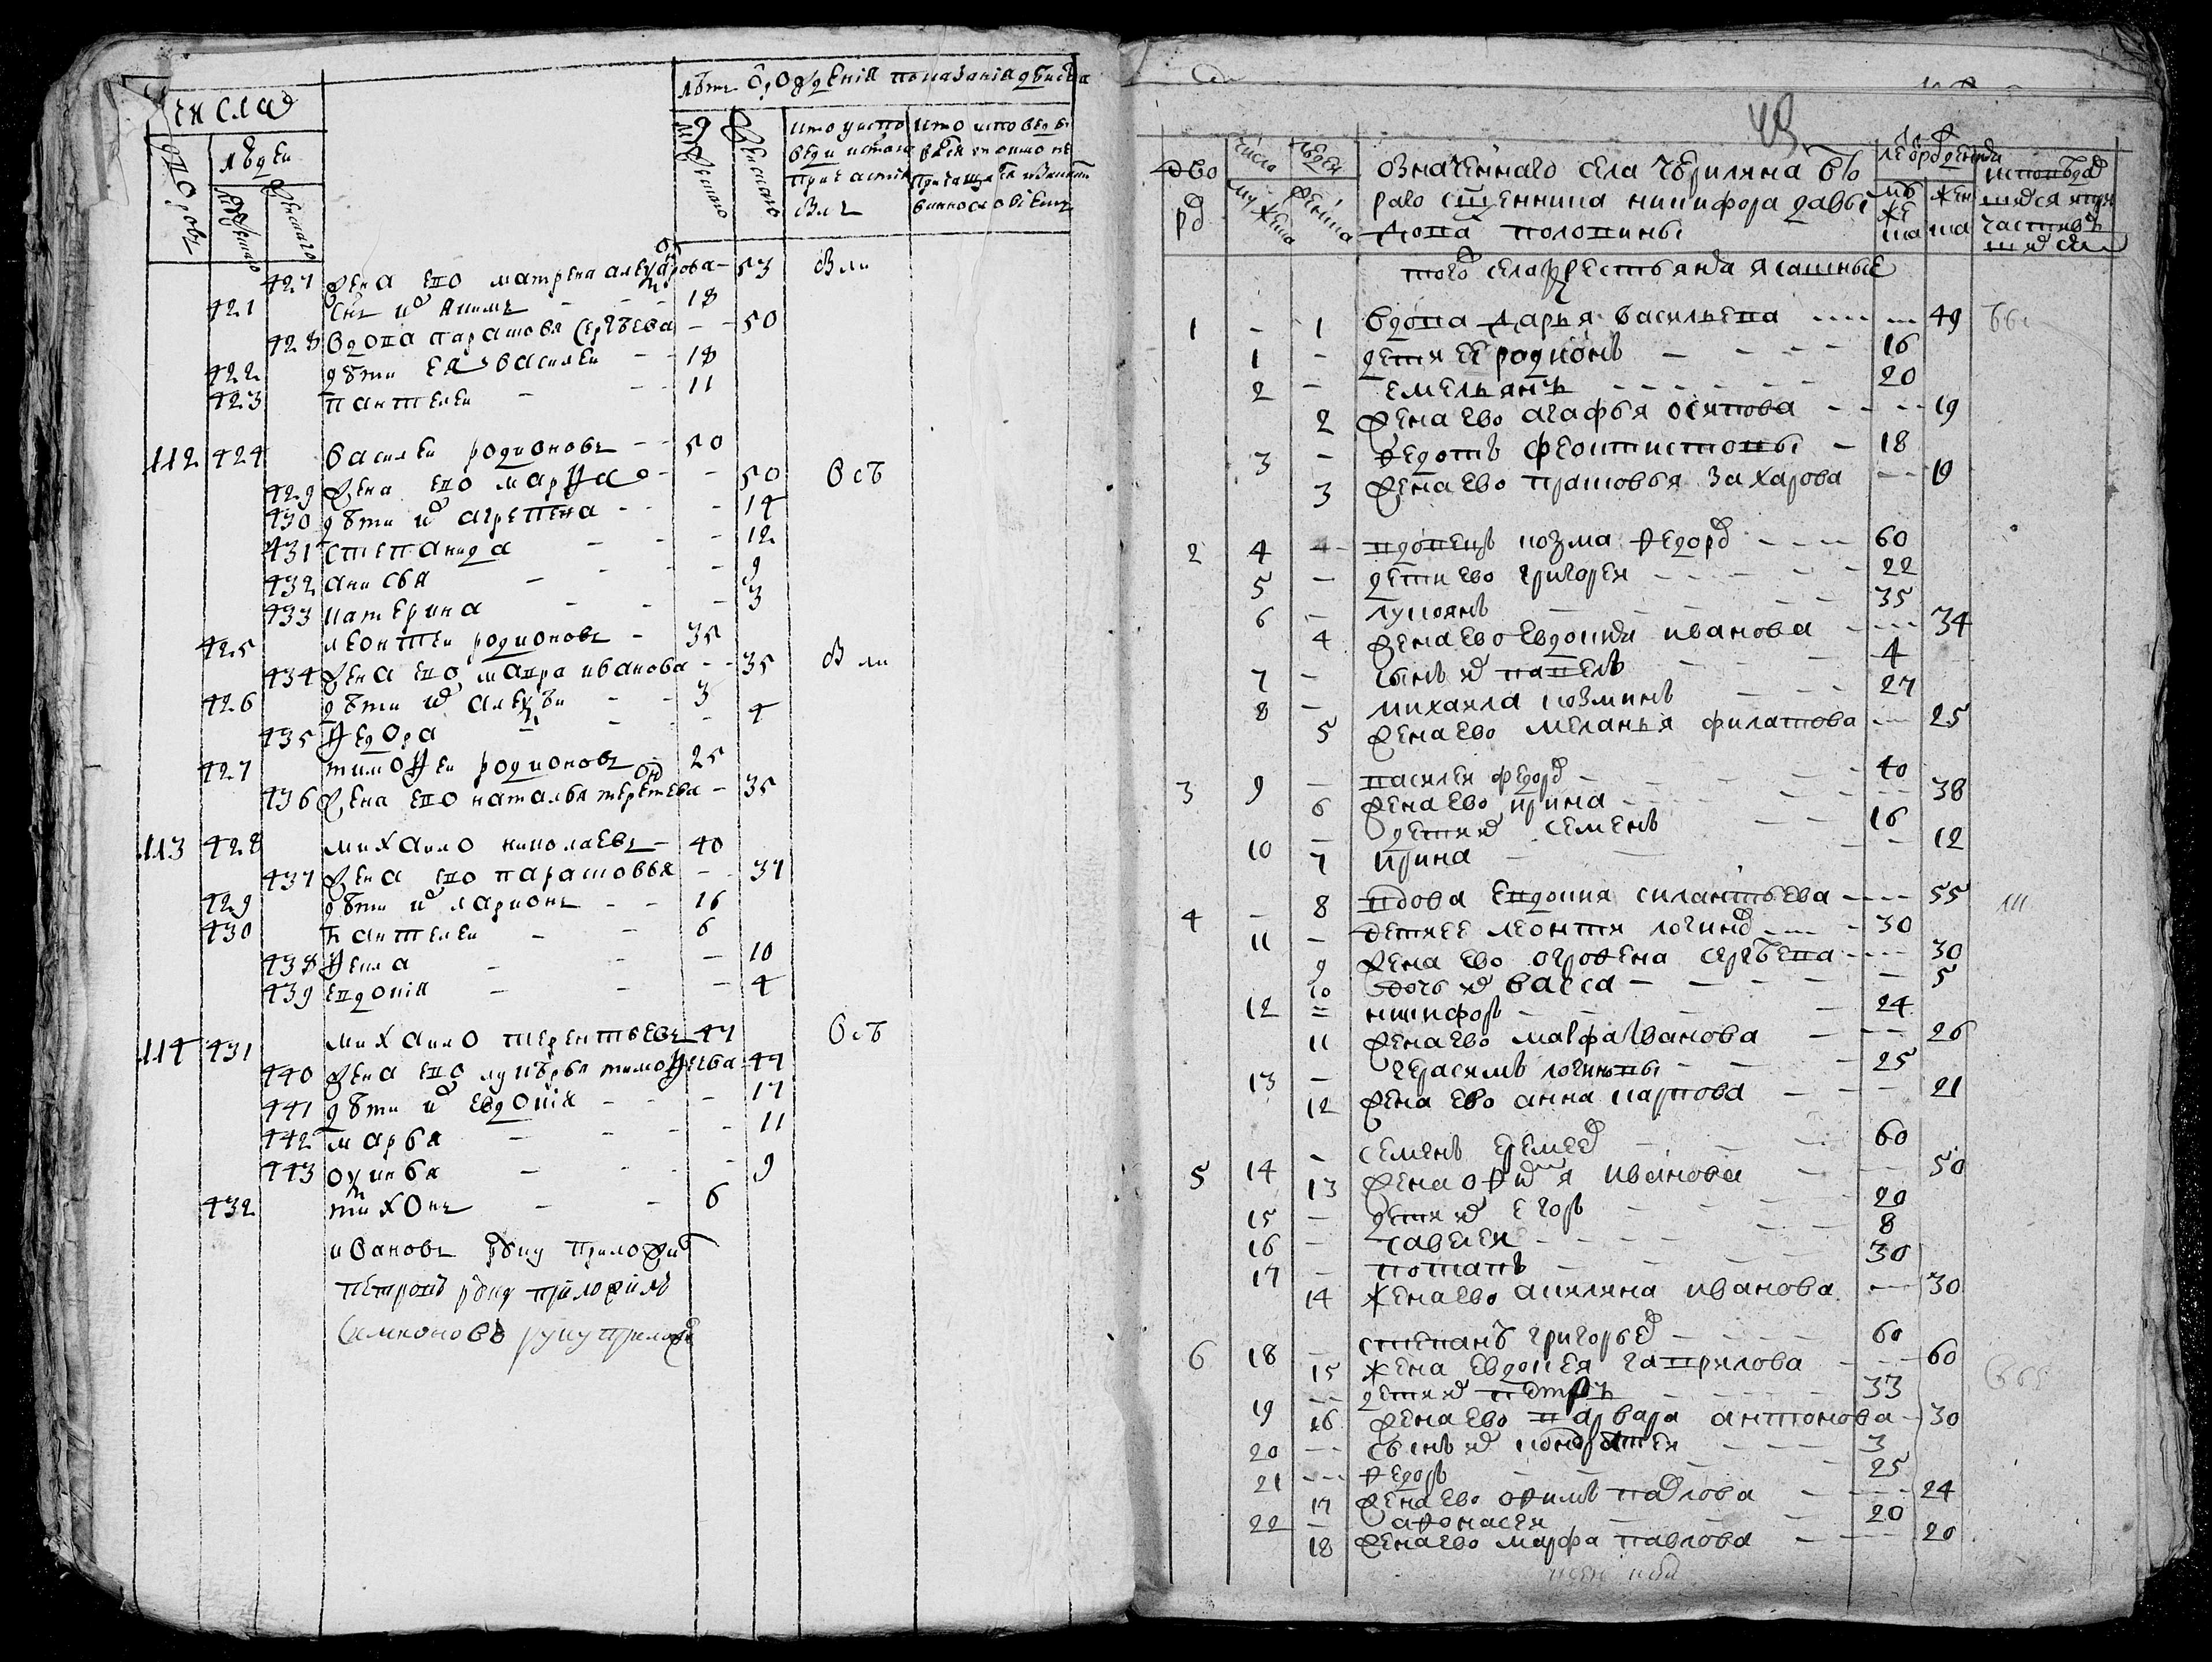 числа
дворовъ
людеи
мужеска
женска
лѣтъ от рождения показания действа
мужеска
женска
кто у испо
веди и свята
причастия
был
кто исповеды
вался
427 жена ево матрена александрова 53 был
421 снъ их яким 18
428 вдова парасковя сергѣева 50
422 дѣти ея василеи 18
423 пантелеи 11
112 424 василеи родионовъ 50
429 жена ево марфа 50 всѣ
430 дѣти их агрепена 14
431 степанида 12
432 анисья 9
433 катерина 3
425 леонтеи родионовъ 35
434 жена ево мавра иванова 35 был
426 дѣти их алексѣи 3
435 федора 4
427 тимофеи родионовъ 25
436 жена ево наталья терентева 35
113 428 михаило николаевъ 40
437 жена ево парасковья 37
429 дѣти их ларионъ 16
430 пантелеи 6
438 фекла 10
439 евдокия 4
114 431 михаило терентьевъ 47 всѣ
440 жена ево лукѣрья тимофеива 47
441 дѣти их евдокия 17
442 марья 11
443 окинья 9
432 тихонъ 6
ивановъ руку приложил
петровъ руку приложилъ
Симионовъ руку приложил
48
дво
ръ
число
людеи
мужеска
женска
означеннаго села
раго сщенника никифора давы
дова половины
лѣ от рождения
муже
ска
жен
ска
исповѣдо
вшихся и при
частивъ
шихся
того села крестьяня ясашные
1 - 1 вдова дарья васильева 49
1 - детя её родионъ 16
2 - емельянъ 20
2 жена ево агафья осипова 19
3 - федотъ феоктистовъ 18
3 жена ево прасковья захарова 19
2 4 4 вдовецъ козма федоро 60
5 - дети ево григорея 22
6 - лукоянъ 35
4 жена ево евдокия иванова 34
7 - сынъ их павелъ 4
8 - михаила козминъ 27
5 жена ево меланья филатова 25
3 9 - василея федоро 40
6 жена ево ирина 38
- детя их семенъ 16
10 7 ирина 12
4 - 8 вдова евдокия силантьева 55
11 - детя её леонтя логино 30
9 жена ево огрофена сергѣева 30
10 дочь их васса 5
12 = никифоръ 24
11 жена ево марфа иванова 26
13 - герасимъ логиновъ 25
12 жена ево анна карпова 21
5 14 - семенъ еремее 60
13 жена офимя иванова 50
15 - детя их егоръ 20
16 - савелея 8
17 - потапъ 30
14 жена ево акиляна иванова 30
6 18 - степанъ григорье 60
15 жена евдокея гаврилова 60
19 - детя их петръ 33
16 жена ево варвара антонова 30
20 - сынъ их кондратея 3
21 - федоръ 25
17 жена ево офимъ павлова 24
22 - афонасея 20
18 жена ево марфа павлова 20